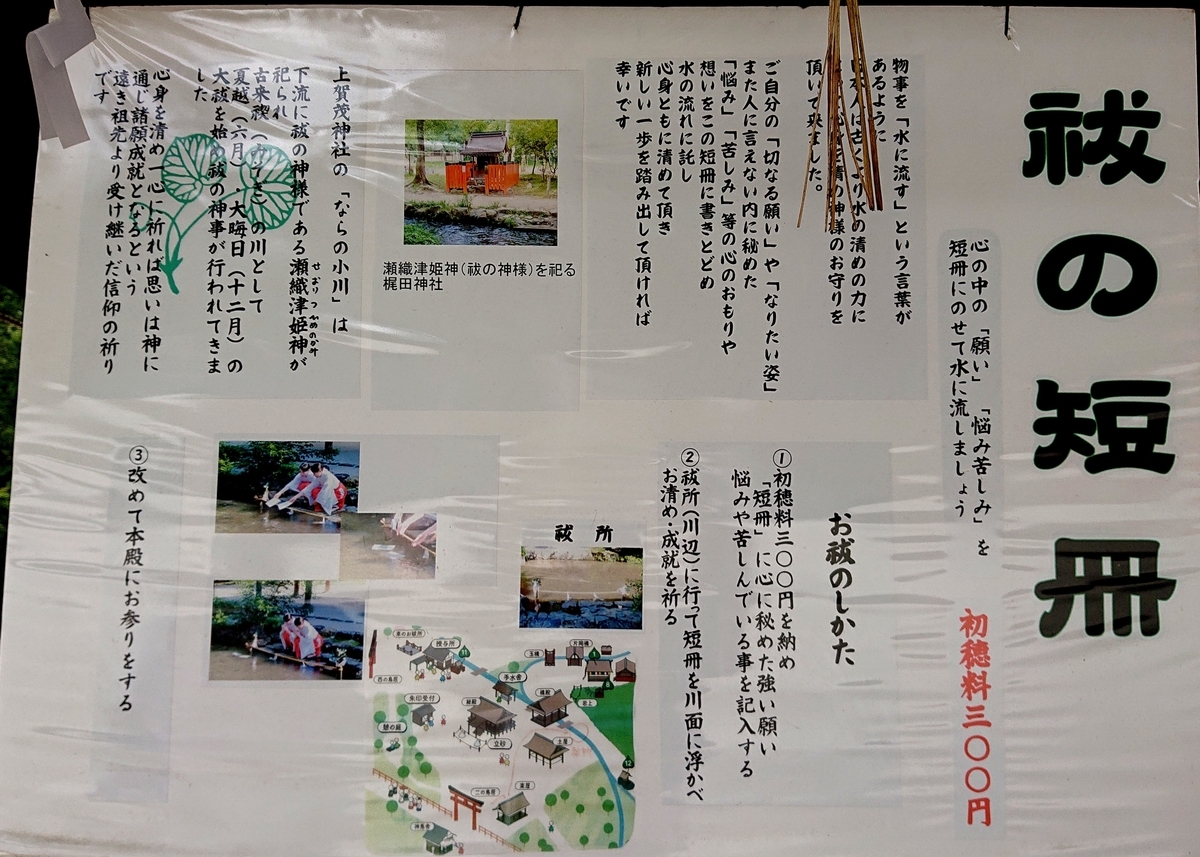 祓の短冊
心の中の「願い」「悩み苦しみ」を
短冊にのせて水に流しましょう
初穂料三〇〇円
物事を「水に流す」という言葉が
あるように
日本人は古くより水の清めの力に
の神様のお守りを
頂いて来ました。
ご自分の「切なる願い」や「なりたい姿」
また人に言えない内に秘めた
「悩み」「苦しみ」等の心のおもりや
想いをこの短冊に書きとどめ
水の流れに託し
心身ともに清めて頂き
新しい一歩を踏み出して頂ければ
幸いです
瀬織津姫神(祓の神様)を祀る
梶田神社
上賀茂神社の「ならの小川」は
下流に祓の神様である瀬織津姫神が
せおりつひめのかみ
祀られ
古来禊(みそぎ)の川として
夏越(六月)・大晦日(十二月)の
大祓を始め祓の神事が行われてきま
した
心身を清め 心に祈れば思いは神に
通じ諸願成就となるという
遠き祖先より受け継いだ信仰の祈り
です
お祓のしかた
①初穂料三〇〇円を納め
「短冊」に心に秘めた強い願い
悩みや苦しんでいる事を記入する
②祓所(川辺)に行って短冊を川面に浮かべ
お清め・成就を祈る
祓所
③改めて本殿にお参りをする
授与所
玉橋
片岡橋
手水舎
朱印受付
細殿
橋殿
立砂
土屋
二の鳥居